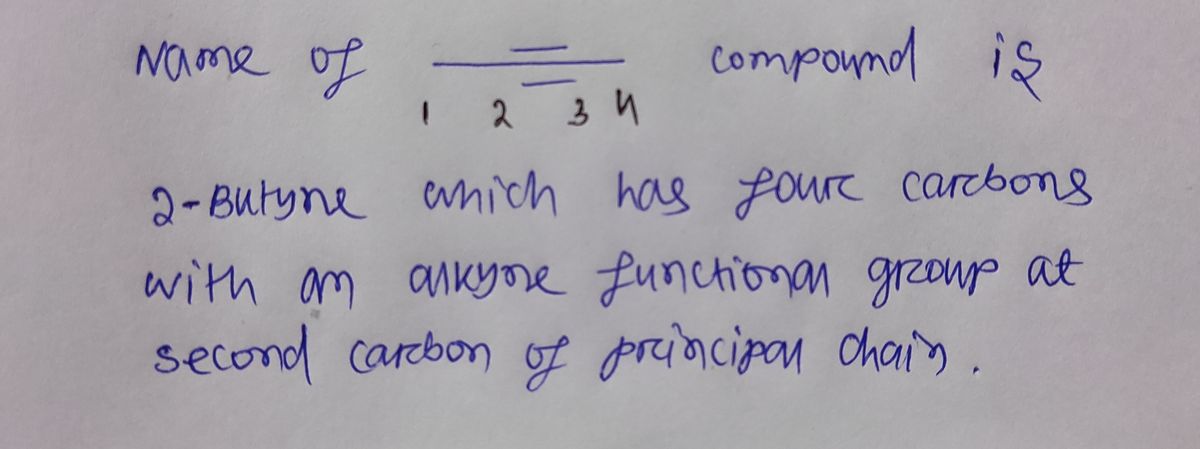 Name of compound is
1 2 3 4
2-Butyne which has four carbons
with an alkyne functional group at
second carbon of principal chain.